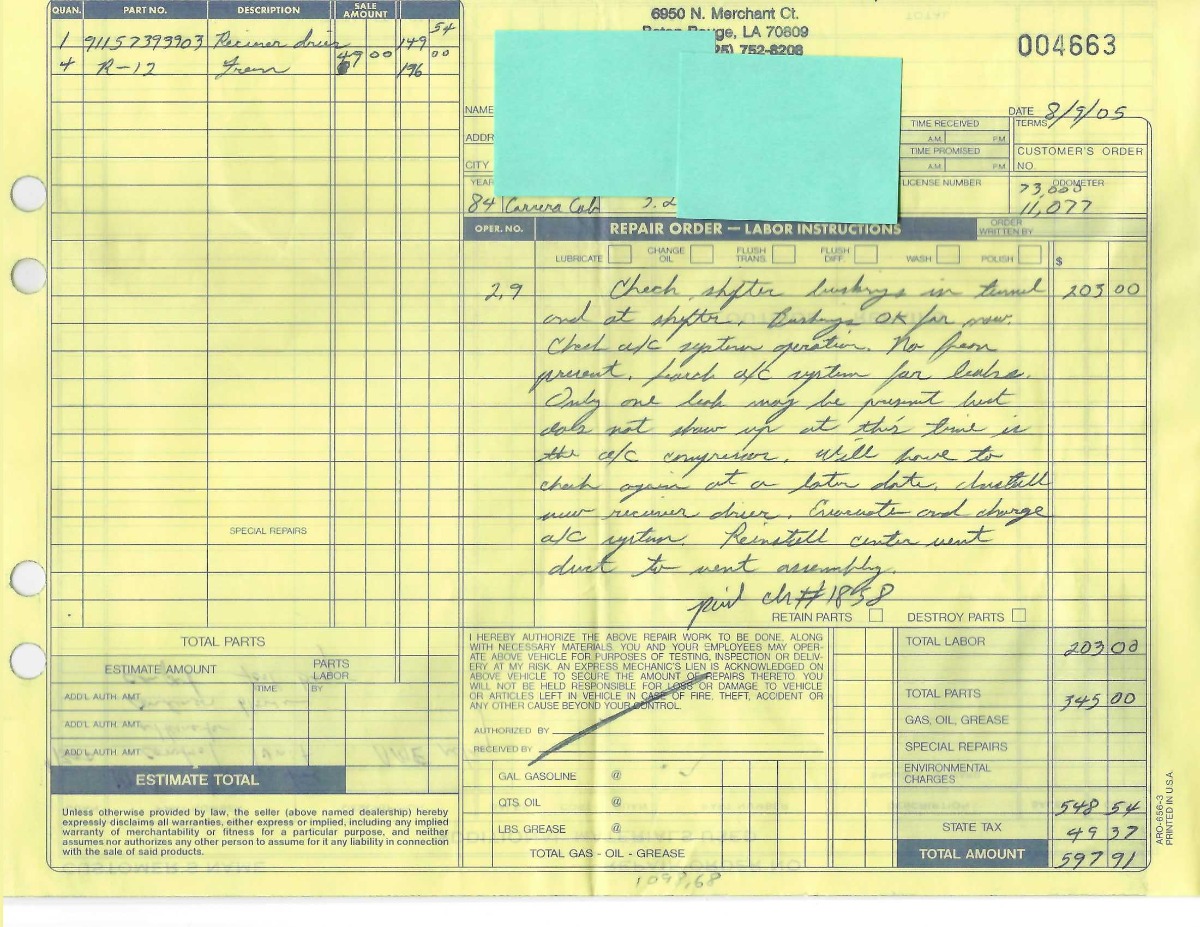 QUAN. PART NO. DESCRIPTION SALE AMOUNT
1 91157393903 Reciever drier 149 54
4 R-12 Freon 49 00 196 00
6950 N. Merchant Ct.
Baton Rouge, LA 70809
752-8208
004663
NAME
DATE 8/9/05
ADDR
TIME RECEIVED A.M. P.M.
TERMS
CITY
TIME PROMISED A.M. P.M.
CUSTOMER'S ORDER NO.
YEAR
LICENSE NUMBER
ODOMETER
73,000
84 Carrera Cab 3.2
11,077
OPER. NO. REPAIR ORDER — LABOR INSTRUCTIONS ORDER WRITTEN BY
LUBRICATE CHANGE OIL FLUSH TRANS. FLUSH DIFF. WASH POLISH $
2.9 Check shifter bushings in tunnel 203 00
and at shifter. Bushings OK for now.
Check a/c system operation. No freon
present. Search a/c system for leaks.
Only one leak may be present but
does not show up at this time is
the a/c compressor. Will have to
check again at a later date. Install
new reciever drier. Evacuate and charge
a/c system. Reinstall center vent
duct to vent assembly.
pird ch# 1858
SPECIAL REPAIRS
RETAIN PARTS DESTROY PARTS
TOTAL PARTS
ESTIMATE AMOUNT PARTS LABOR
TIME BY
ADD'L AUTH. AMT.
ADD'L AUTH. AMT.
ADD'L AUTH. AMT.
ESTIMATE TOTAL
Unless otherwise provided by law, the seller (above named dealership) hereby
expressly disclaims all warranties, either express or implied, including any implied
warranty of merchantability or fitness for a particular purpose, and neither
assumes nor authorizes any other person to assume for it any liability in connection
with the sale of said products.
I HEREBY AUTHORIZE THE ABOVE REPAIR WORK TO BE DONE, ALONG
WITH NECESSARY MATERIALS. YOU AND YOUR EMPLOYEES MAY OPER-
ATE ABOVE VEHICLE FOR PURPOSES OF TESTING, INSPECTION OR DELIV-
ERY AT MY RISK. AN EXPRESS MECHANIC'S LIEN IS ACKNOWLEDGED ON
ABOVE VEHICLE TO SECURE THE AMOUNT OF REPAIRS THERETO. YOU
WILL NOT BE HELD RESPONSIBLE FOR LOSS OR DAMAGE TO VEHICLE
OR ARTICLES LEFT IN VEHICLE IN CASE OF FIRE, THEFT, ACCIDENT OR
ANY OTHER CAUSE BEYOND YOUR CONTROL.
AUTHORIZED BY
RECEIVED BY
GAL. GASOLINE @
QTS. OIL @
LBS. GREASE @
TOTAL GAS - OIL - GREASE
TOTAL LABOR 203 00
TOTAL PARTS 345 00
GAS, OIL, GREASE
SPECIAL REPAIRS
ENVIRONMENTAL CHARGES
548 54
STATE TAX 49 37
TOTAL AMOUNT 597 91
1098.68
ARO-656-3
PRINTED IN U.S.A.